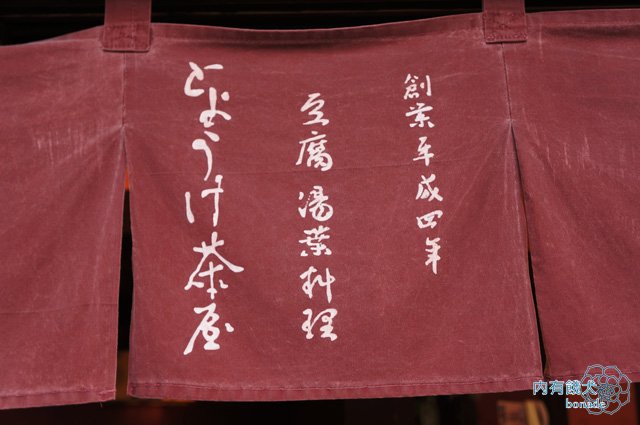 創業平成四年
豆腐湯葉料理
とようけ茶屋
内有餓犬
bonade